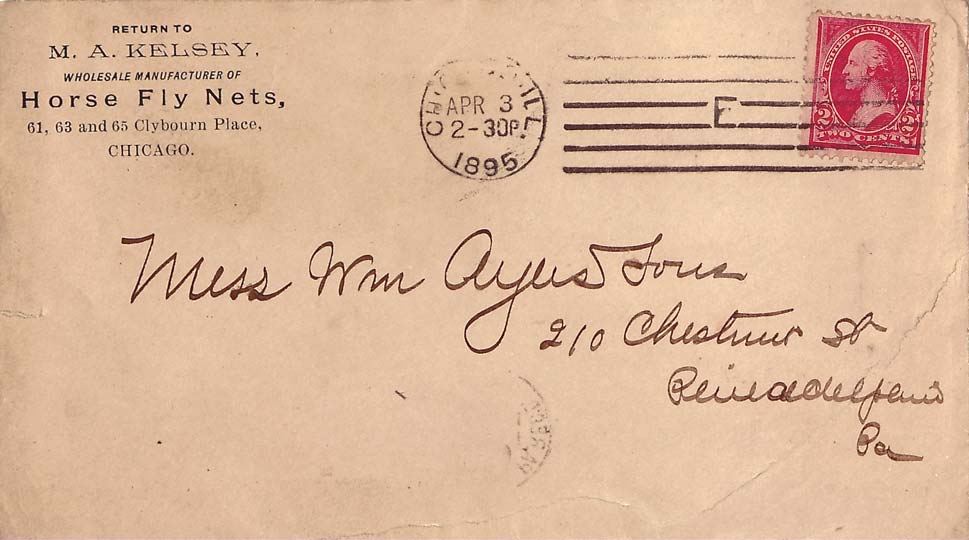 RETURN TO
M. A. KELSEY,
WHOLESALE MANUFACTURER OF
Horse Fly Nets,
61, 63 and 65 Clybourn Place,
CHICAGO.
ILL.
APR 3
2-30P.
1895
E
UNITED STATES POSTAGE
2 2
TWO CENTS
Mess Wm Ayres Sons
210 Chestnut St
Philadelphia
Pa